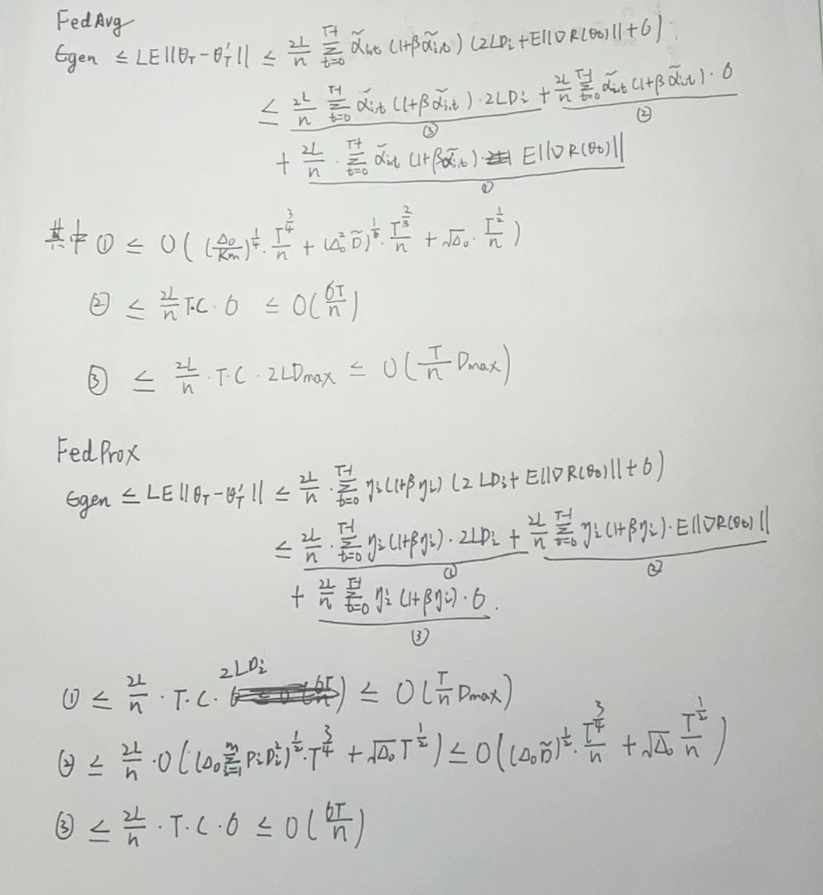 FedAvg
Egen ≤ LE||θ_T - θ'_T|| ≤ 2L/n Σ_{t=0}^{T-1} α̃_{i,t} (1+βα̃_{i,t}) (2LD_i + E||∇R(θ_t)|| + σ)
≤ 2L/n Σ_{t=0}^{T-1} α̃_{i,t} (1+βα̃_{i,t}) · 2LD_i + 2L/n Σ_{t=0}^{T-1} α̃_{i,t} (1+βα̃_{i,t}) · σ
③ ②
+ 2L/n · Σ_{t=0}^{T-1} α̃_{i,t} (1+βα̃_{i,t}) E||∇R(θ_t)||
①
其中 ① ≤ O( (Δ₀/Km)^{1/4} · T^{3/4}/n + (Δ₀² D̃)^{1/6} · T^{2/3}/n + √Δ₀ · T^{1/2}/n )
② ≤ 2L/n T·C · σ ≤ O(σT/n)
③ ≤ 2L/n · T·C · 2LDmax ≤ O(T/n Dmax)
FedProx
Egen ≤ LE||θ_T - θ'_T|| ≤ 2L/n · Σ_{t=0}^{T-1} η_i (1+βη_i) (2LD_i + E||∇R(θ_t)|| + σ)
≤ 2L/n · Σ_{t=0}^{T-1} η_i (1+βη_i) · 2LD_i + 2L/n Σ_{t=0}^{T-1} η_i (1+βη_i) · E||∇R(θ_t)||
① ②
+ 2L/n Σ_{t=0}^{T-1} η_i (1+βη_i) · σ.
③
① ≤ 2L/n · T·C · 2LD_i ≤ O(T/n Dmax)
② ≤ 2L/n · O( (Δ₀ Σ_{i=1}^{m} P_i D_i²)^{1/2} · T^{3/4} + √Δ₀ T^{1/2} ) ≤ O( (Δ₀ D̃)^{1/2} · T^{3/4}/n + √Δ₀ T^{1/2}/n )
③ ≤ 2L/n · T·C · σ ≤ O(σT/n)